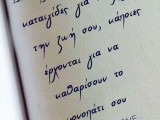 καταιγίδες για να
την ζωή σου, κάποιες
έρχονται για να
καθαρίσουν το
σου